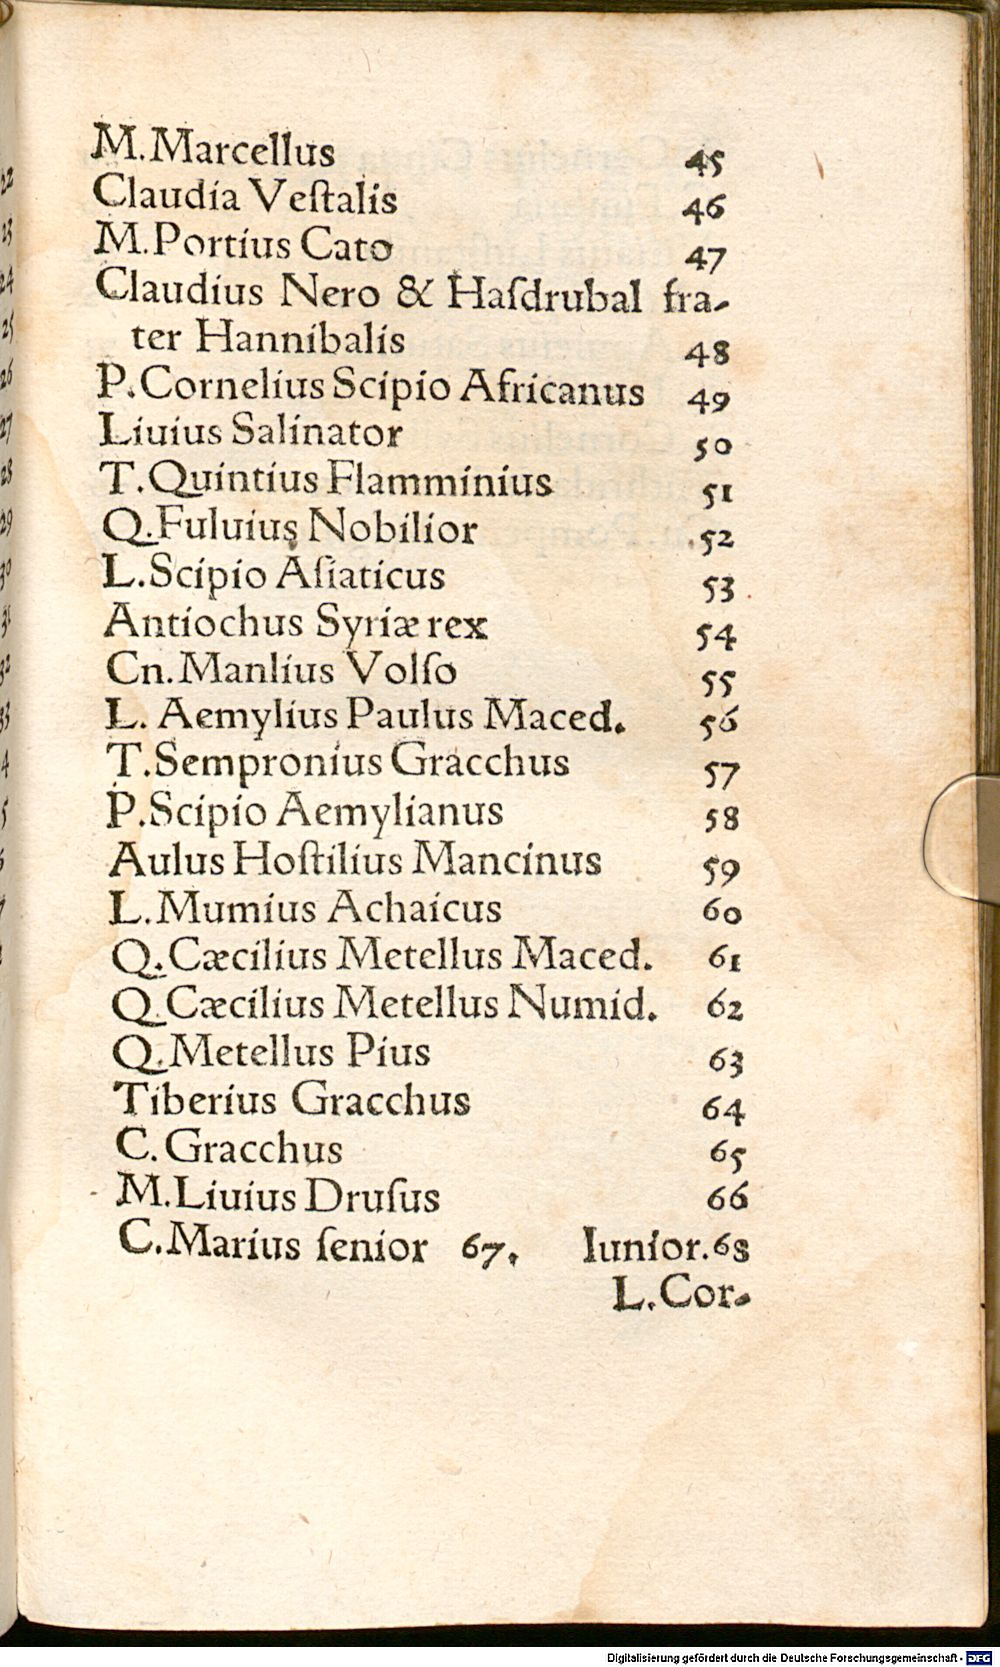 M.Marcellus 45
Claudia Veſtalis 46
M.Portius Cato 47
Claudius Nero & Haſdrubal fra-
ter Hannibalis 48
P.Cornelius Scipio Africanus 49
Liuius Salinator 50
T.Quintius Flamminius 51
Q.Fuluius Nobilior 52
L.Scipio Aſiaticus 53
Antiochus Syriæ rex 54
Cn.Manlius Volſo 55
L. Aemylius Paulus Maced. 56
T.Sempronius Gracchus 57
P.Scipio Aemylianus 58
Aulus Hoſtilius Mancinus 59
L.Mumius Achaicus 60
Q.Cæcilius Metellus Maced. 61
Q.Cæcilius Metellus Numid. 62
Q.Metellus Pius 63
Tiberius Gracchus 64
C.Gracchus 65
M.Liuius Druſus 66
C.Marius ſenior 67. Iunior.68
L.Cor-
22
23
24
25
26
27
28
29
30
31
32
33
4
5
Digitalisierung gefördert durch die Deutsche Forschungsgemeinschaft - DFG